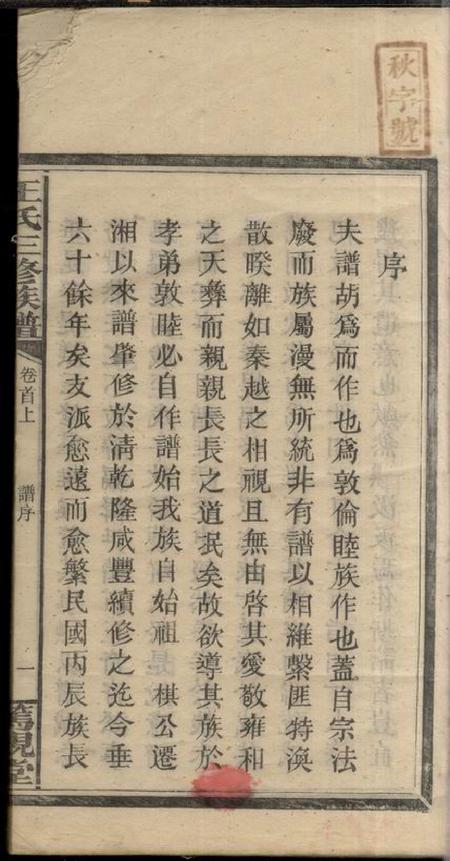 秋字號
序
夫譜胡爲而作也爲敦倫睦族作也蓋自宗法
廢而族屬漫無所統非有譜以相維繫匪特渙
散暌離如秦越之相視且無由啓其愛敬雍和
之天彝而親親長長之道泯矣故欲導其族於
孝弟敦睦必自作譜始我族自始祖 棋公遷
湘以來譜肇修於淸乾隆咸豐續修之迄今垂
六十餘年矣支派愈遠而愈繁民國丙辰族長
王氏三修族譜
卷首上
譜序
一
篤親堂